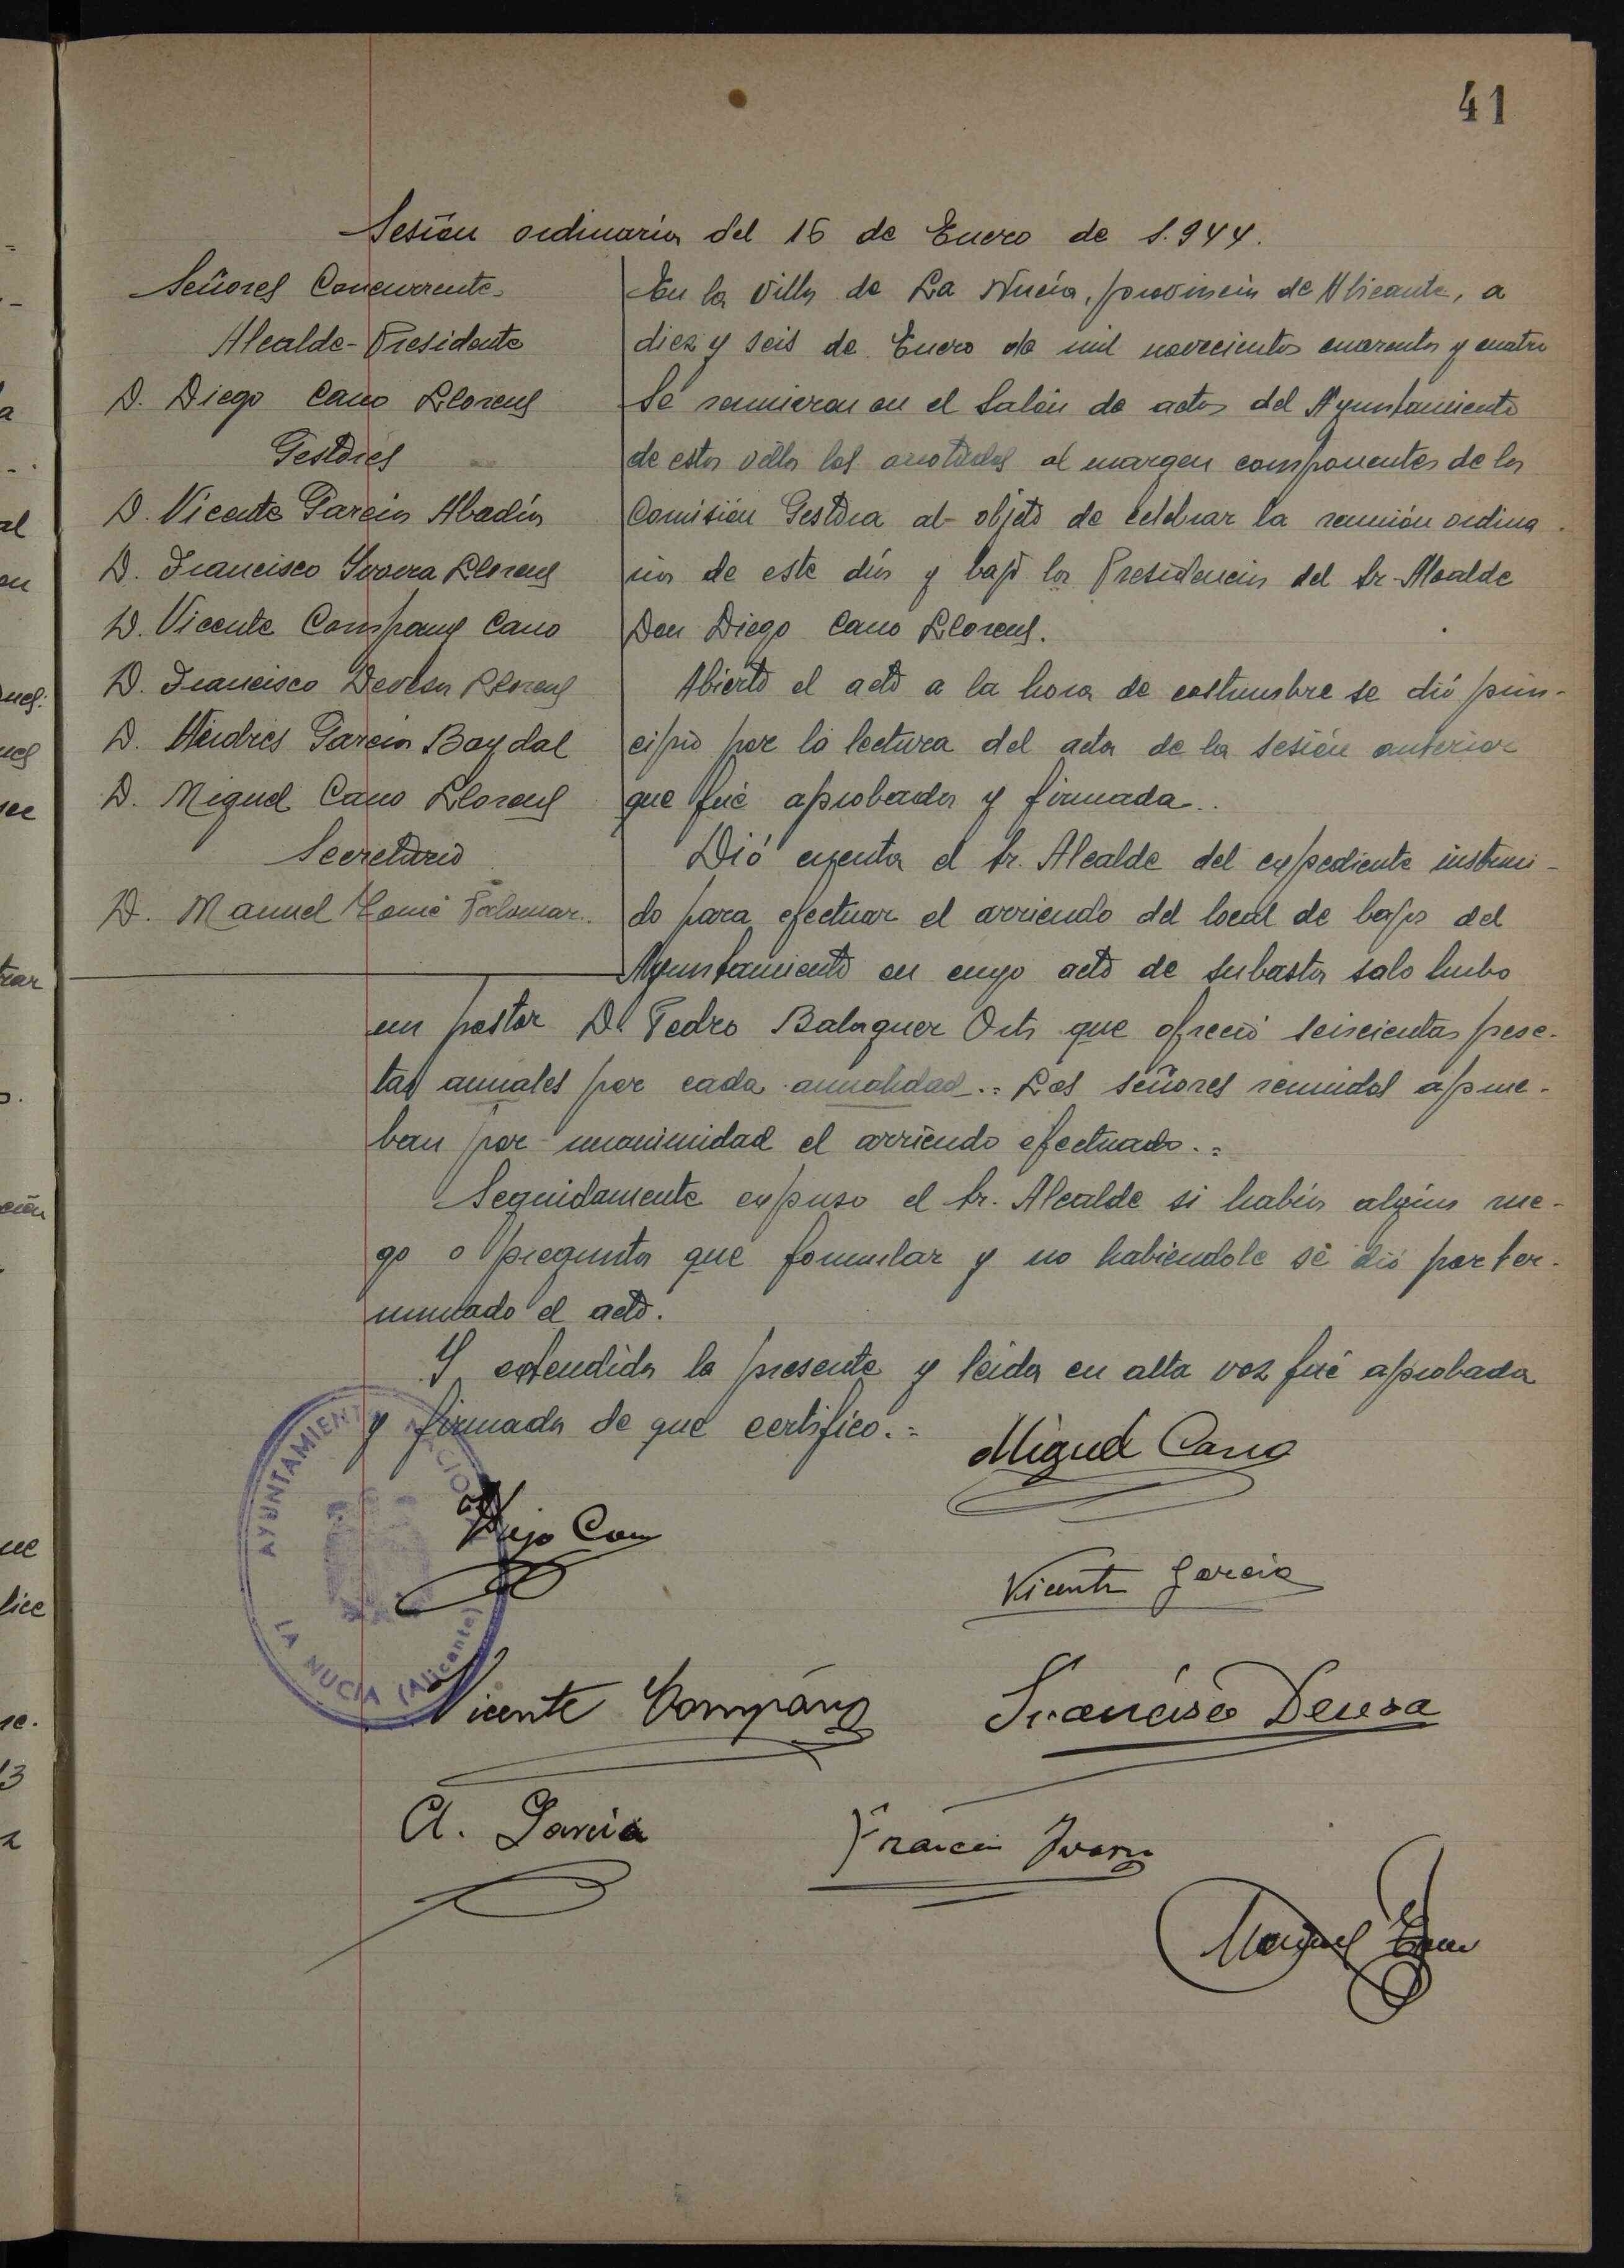 41
Sesión ordinaria del 16 de Enero de 1.944.
Señores Concurrentes
Alcalde-Presidente
D. Diego Cano Llorens
Gestores
D. Vicente García Abadía
D. Francisco Ivorra Llorens
D. Vicente Company Cano
D. Francisco Devesa Llorens
D. Andrés García Baydal
D. Miguel Cano Llorens
Secretario
D. Manuel Tomé Palomar.
En la villa de La Nucía, provincia de Alicante, a
diez y seis de Enero de mil novecientos cuarenta y cuatro
Se reunieron en el Salón de actos del Ayuntamiento
de esta villa los anotados al margen componentes de la
Comisión Gestora al objeto de celebrar la reunión ordina-
ria de este día y bajo la Presidencia del Sr. Alcalde
Don Diego Cano Llorens.
Abierto el acto a la hora de costumbre se dió prin-
cipio por la lectura del acta de la sesión anterior
que fué aprobada y firmada.
Dió cuenta el Sr. Alcalde del expediente instrui-
do para efectuar el arriendo del local de bajos del
Ayuntamiento en cuyo acto de subasta solo hubo
un postor D. Pedro Balaguer Orts que ofreció seiscientas pese-
tas anuales por cada anualidad.= Los señores reunidos aprue-
ban por unanimidad el arriendo efectuado.=
Seguidamente expuso el Sr. Alcalde si había algún rue-
go o pregunta que formular y no habiendole se dió por ter-
minado el acto.
Y extendida la presente y leida en alta voz fué aprobada
y firmada de que certifico.=
Miguel Cano
Diego Cano
Vicente García
AYUNTAMIENTO NACIONAL
LA NUCIA (Alicante)
Vicente Company
Francisco Devesa
A. García
Francisco Ivorra
Manuel Tomé